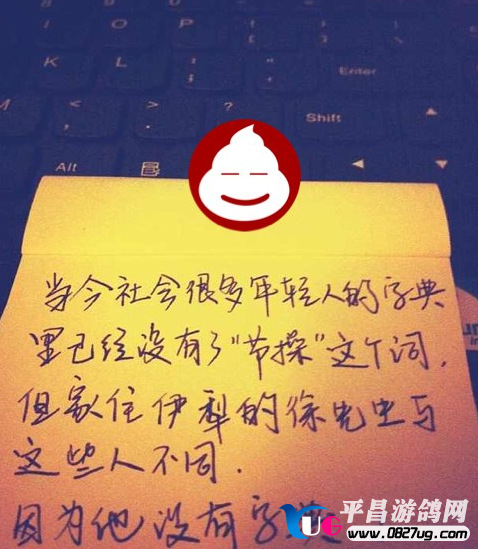 I
O
P
K
L
Enter
M
Shift
Alt
当今社会很多年轻人的字典
里已经没有了“节操”这个词,
但家住伊犁的徐先生与
这些人不同.
因为他没有字典
平昌游鸽网
UG
www.0827ug.com